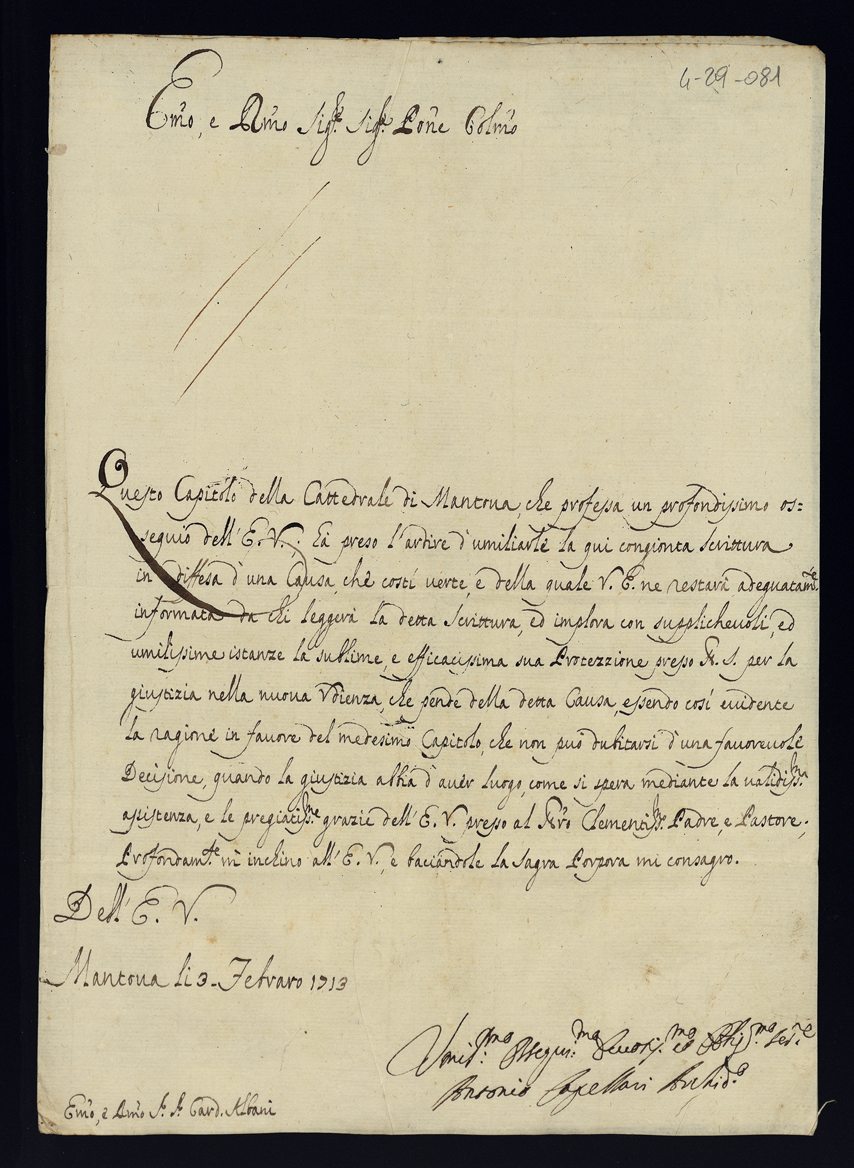 4-29-081
Emo, e Rmo Sigr. Sigr. Pone Colmo
Questo Capitolo della Cattedrale di Mantova, che professa un profondissimo os=
sequio dell'E. V., hà preso l'ardire d'umiliarle la qui congionta Scrittura
in diffesa d'una Causa, che costí uerte, e della quale V. E. ne restarà adeguatamte.
informata da chi leggerà la detta Scrittura, ed implora con supplicheuoli, ed
umilissime istanze la sublime, e efficacissima sua Protezzione presso N. S. per la
giustizia nella nuoua Vdienza, che pende della detta Causa, essendo cosí euidente
la ragione in fauore del medesimo Capitolo, che non può dubitarsi d'una fauoreuole
Decisione, quando la giustizia abbia d'auer luogo, come si spera mediante la validissma.
assistenza, e le pregiatisse. grazie dell'E. V. presso al Nro Clementissmo. Padre, e Pastore;
Profondamte. m'inchino all'E. V., e baciandole la Sagra Porpora mi consagro.
Dell'E. V.
Mantoua li 3. Febraro 1713
Vmilmo. Ossequmo. Deuotismo. ed Obligmo. Serre
Antonio Capellari Archido.
Emo, e Rmo Sr. Sr. Card. Albani